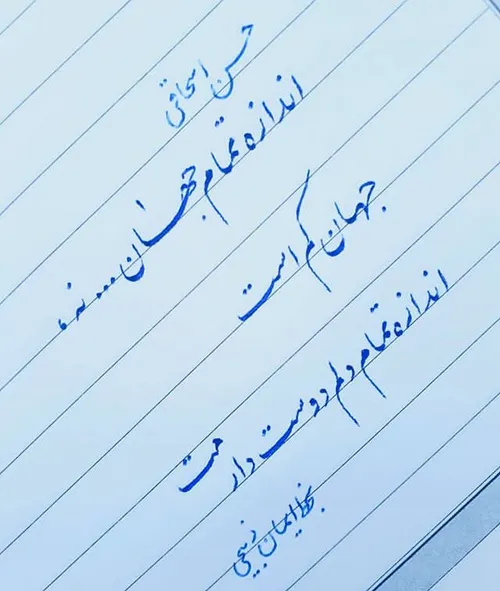 حسن اسحاقی
اندازه تمام جهان... نه،
جهان کم است
اندازه تمام دلم دوست دارمت
بخط ایمان